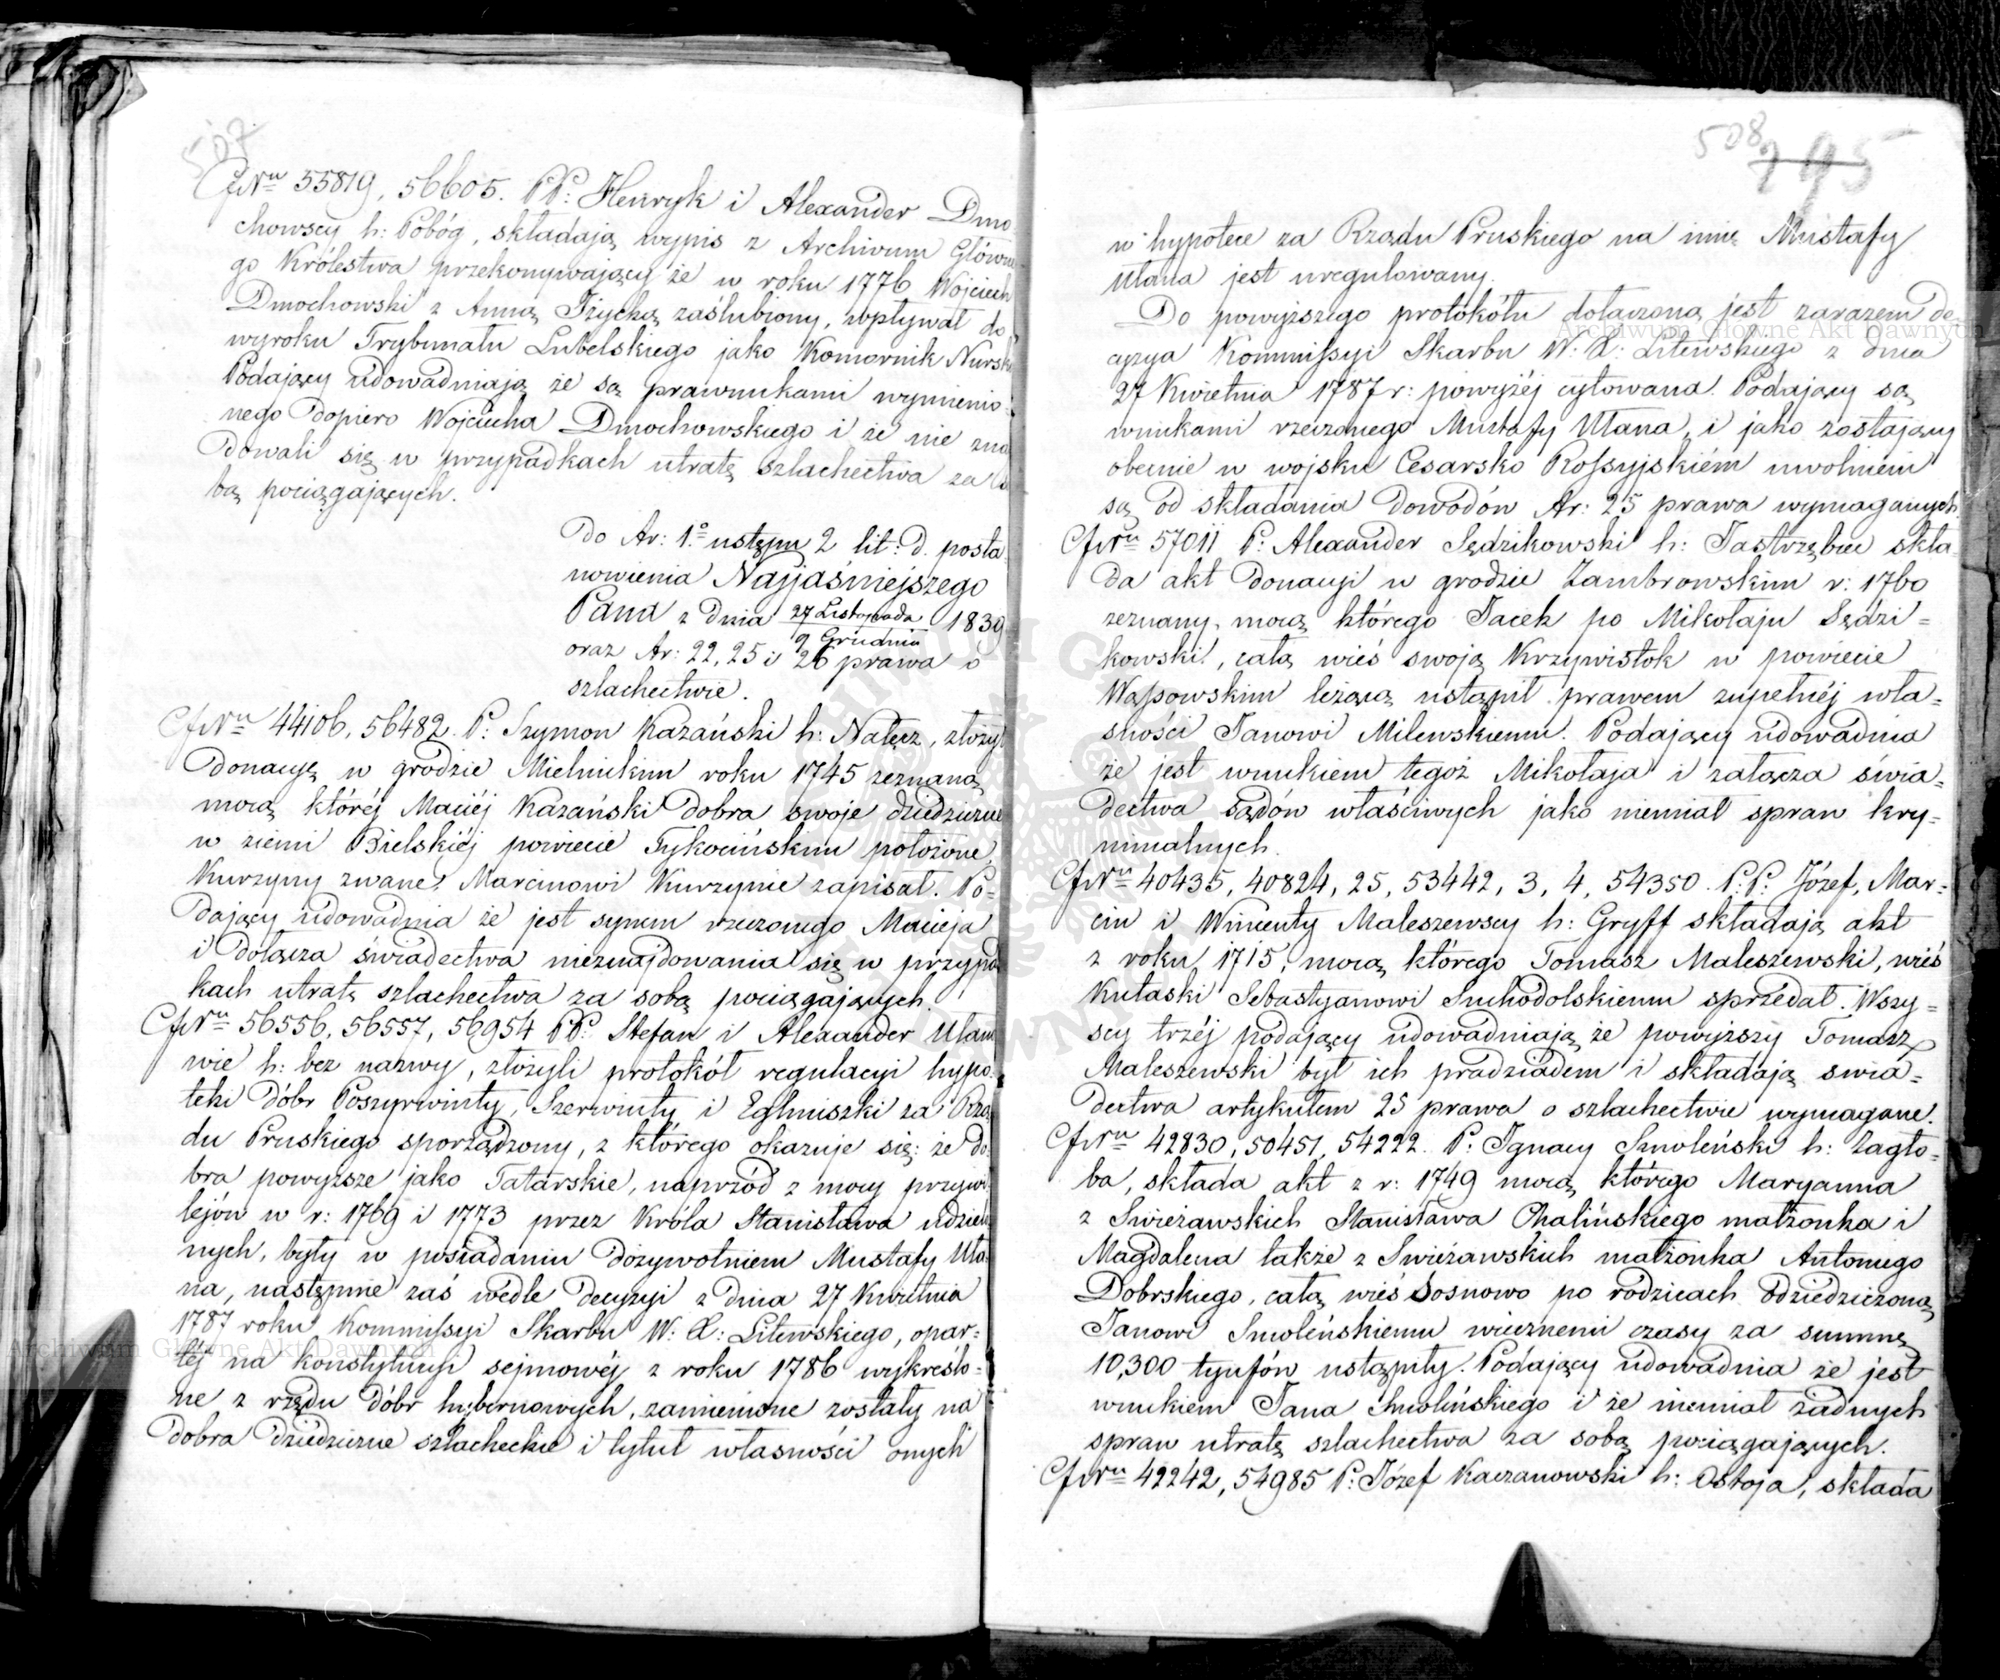 507
CfNru 55819, 56605. PP: Henryk i Alexander Dmo
chowscy h: Pobóg, składają wypis z Archiwum Główne
go Królestwa przekonywający że w roku 1776 Wojciech
Dmochowski z Anną Iżycką zaślubiony, wpływał do
wyroku Trybunału Lubelskiego jako Komornik Nurski
Podający udowadniają że są prawnukami wymienio
nego dopiero Wojciecha Dmochowskiego i że nie zna
dowali się w przypadkach utratę szlachectwa za so
bą pociągających.
Do Ar: 1.o ustępu 2 lit: d. posta
nowienia Najjaśniejszego
Pana z dnia 27 Listopada / 9 Grudnia 1839
oraz Ar: 22, 25 i 26 prawa o
szlachectwie.
CfNru 44106, 56482. P: Szymon Kazański h: Nałęcz, złożył
donacyę w grodzie Mielnickim roku 1745 zeznaną,
mocą któréj Maciéj Kazański dobra swoje dziedziczne
w ziemi Bielskiéj powiecie Tykocińskim położone,
Kurzyny zwane, Marcinowi Kurzynie zapisał. Po-
dający udowadnia że jest synem rzeczonego Macieja
i dołącza świadectwa nieznajdowania się w przypad
kach utratę szlachectwa za sobą pociągających.
CfNru 56556, 56557, 56954 PP: Stefan i Alexander Ułano
wie h: bez nazwy, złożyli protokół regulacyi hypo
teki Dóbr Poszyrwinty, Szerwinty i Egliniszki za Rzą
du Pruskiego sporządzony, z którego okazuje się: że do
bra powyższe jako Tatarskie, naprzód z mocy przywi
lejów w r: 1769 i 1773 przez Króla Stanisława udzielo
nych, były w posiadaniu dożywotniem Mustafy Uła
na, następnie zaś wedle decyzyi z dnia 27 Kwietnia
1787 roku Kommissyi Skarbu W: X: Litewskiego, opar-
téj na konstytucyi sejmowéj z roku 1786 wykreślo-
ne z rzędu dóbr hybernowych, zamienione zostały na
dobra dziedziczne szlacheckie i tytuł własności onych
508
295
w hypotece za Rządu Pruskiego na imie Mustafy
Ułana jest uregulowany.
Do powyższego protokółu dołączoną jest zarazem de
cyzya Kommissyi Skarbu W: X: Litewskiego z dnia
27 Kwietnia 1787 r: powyżéj cytowana. Podający są
wnukami rzeczonego Mustafy Ułana, i jako zostający
obecnie w wojsku Cesarsko Rossyjskiém uwolnieni
są od składania dowodów Ar: 25 prawa wymaganych.
CfNru 57011 P: Alexander Sędzikowski h: Jastrzębiec skła
da akt donacyi w grodzie Zambrowskim r: 1760
zeznany, mocą którego Jacek po Mikołaju Sędzi-
kowski, całą wieś swoją Krzywistok w powiecie
Wąsowskim leżącą ustąpił prawem zupełnéj wła-
sności Janowi Milewskiemu. Podający udowadnia
że jest wnukiem tegoż Mikołaja i załącza świa-
dectwa sądów właściwych jako niemiał spraw kry-
minalnych.
CfNru 40435, 40824, 25, 53442, 3, 4, 54350. P.P: Józef, Mar-
cin i Wincenty Maleszewscy h: Gryff składają akt
z roku 1715, mocą którego Tomasz Maleszewski, wieś
Kutaski Sebastyanowi Suchodolskiemu sprzedał. Wszy-
scy trzéj podający udowadniają że powyższy Tomasz
Maleszewski był ich pradziadem i składają świa-
dectwa artykułem 25 prawa o szlachectwie wymagane.
CfNru 42830, 50451, 54222. P: Ignacy Smoleński h: Zagło-
ba, składa akt z r: 1749 mocą którego Maryanna
z Swieżawskich Stanisława Chalińskiego małżonka i
Magdalena także z Swieżawskich małżonka Antoniego
Dobrskiego, całą wieś Sosnowo po rodzicach odziedziczoną
Janowi Smoleńskiemu wiecznemi czasy za summę
10,300 tynfów ustąpiły. Podający udowadnia że jest
wnukiem Jana Smoleńskiego i że niemiał żadnych
spraw utratę szlachectwa za sobą pociągających.
CfNru 42242, 54985 P: Józef Kaczanowski h: Ostoja, składa
Archiwum Główne Akt Dawnych
Archiwum Główne Akt Dawnych